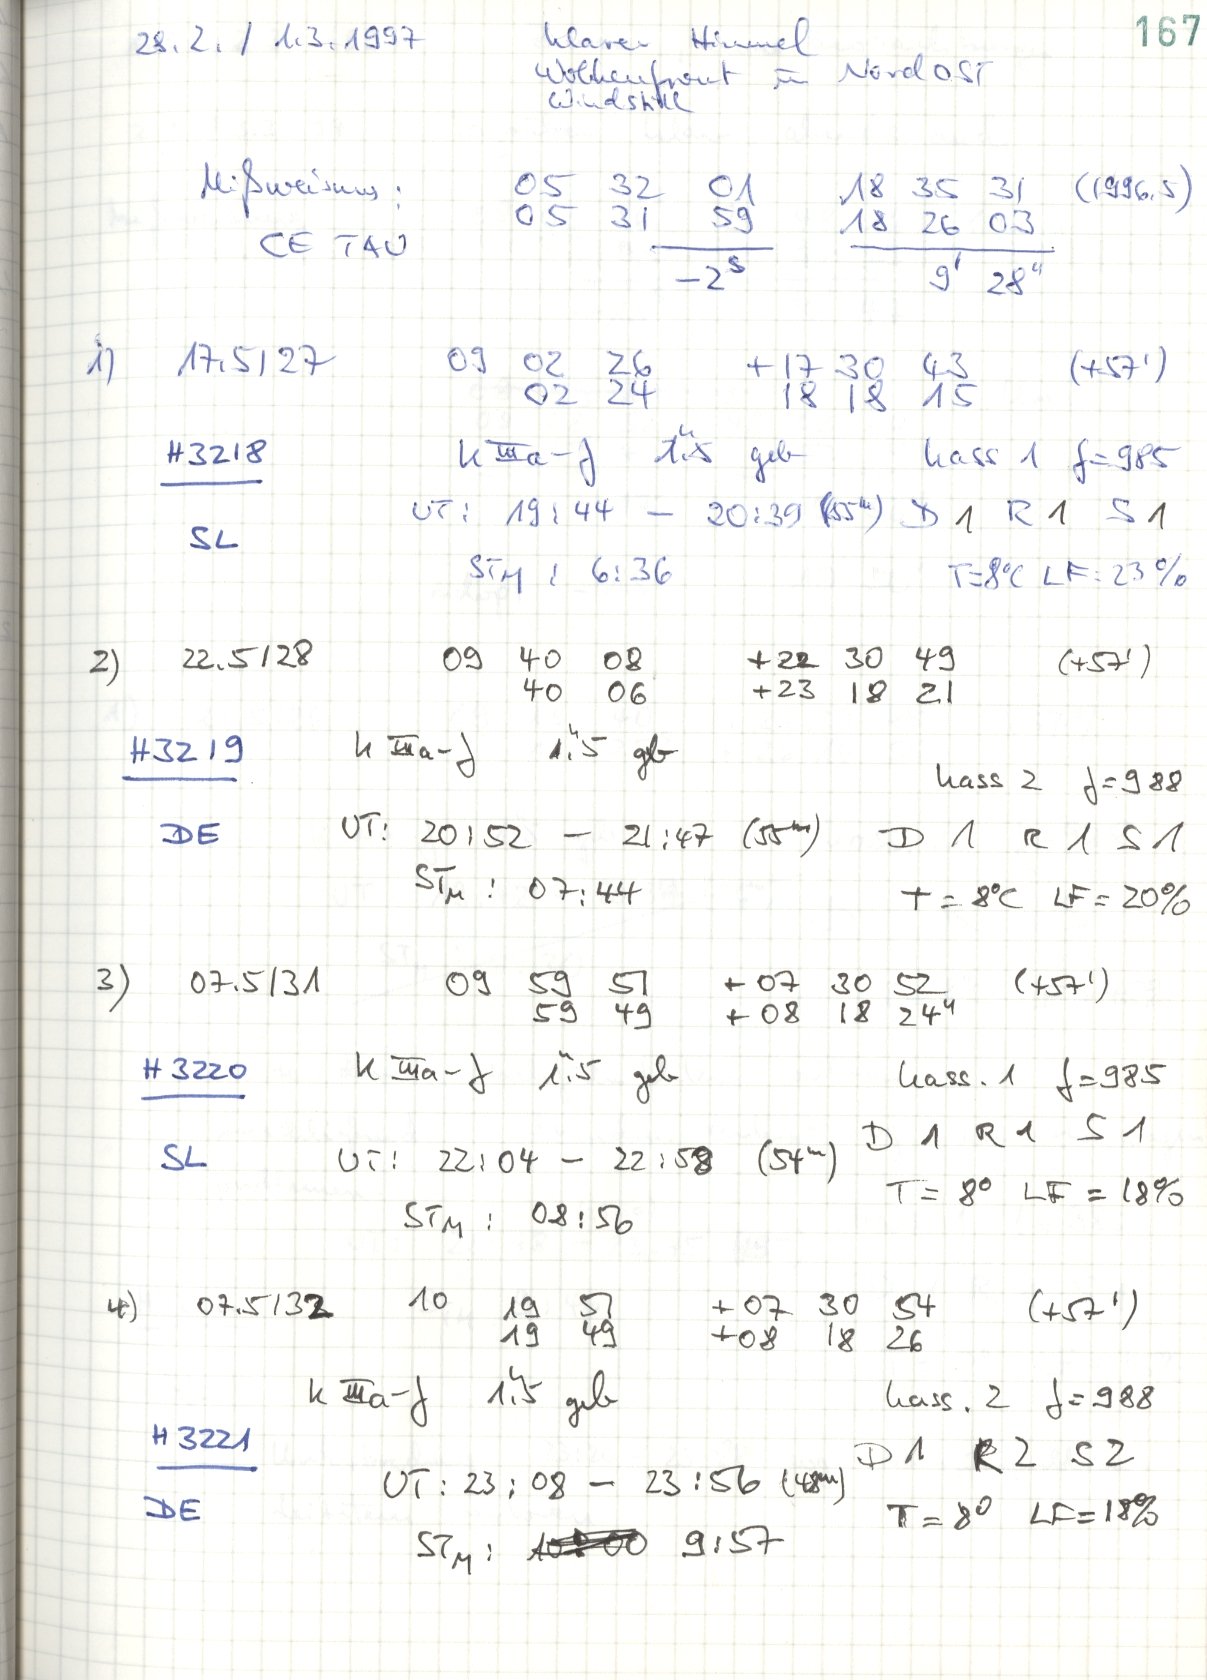 167
28.2. / 1.3.1997 klarer Himmel
Wolkenfront im NordOST
Windstill
Mißweisung: 05 32 01 18 35 31 (1996.5)
05 31 59 18 26 03
CE TAU
-2ˢ 9' 28"
1) 17.5/27 09 02 26 +17 30 43 (+57')
02 24 18 18 15
H3218 K IIIa-J 1."5 geb Kass 1 f=985
UT: 19:44 – 20:39 (55ᵐ) D 1 R 1 S 1
SL
STM : 6:36 T=8°C LF: 23%
2) 22.5/28 09 40 08 +22 30 49 (+57')
40 06 +23 18 21
H3219 K IIIa-J 1."5 geb
Kass 2 f=988
DE UT: 20:52 – 21:47 (55ᵐ) D 1 R 1 S 1
STM : 07:44 T = 8°C LF = 20%
3) 07.5/31 09 59 51 +07 30 52 (+57')
59 49 +08 18 24"
H3220 K IIIa-J 1."5 geb Kass. 1 f=985
D 1 R 1 S 1
SL UT: 22:04 – 22:58 (54ᵐ)
T = 8° LF = 18%
STM : 08:56
4) 07.5/32 10 19 51 +07 30 54 (+57')
19 49 +08 18 26
K IIIa-J 1."5 geb Kass. 2 f=988
H3221
D 1 R 2 S 2
UT: 23:08 – 23:56 (48ᵐ)
DE T = 8° LF = 18%
STM : 9:57